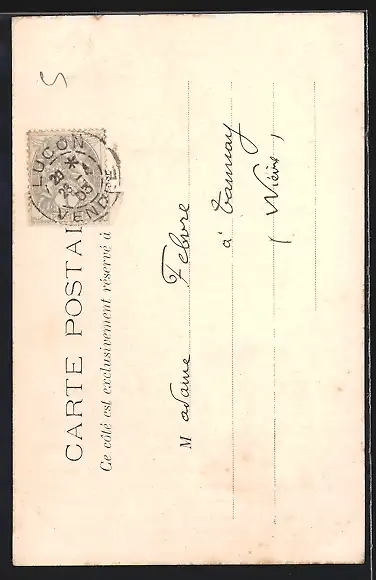 5
LUÇON
VENDÉE
CARTE POSTAL
Ce côté est exclusivement réservé à
Madame Febvre
à Tannay
(Nièvre)